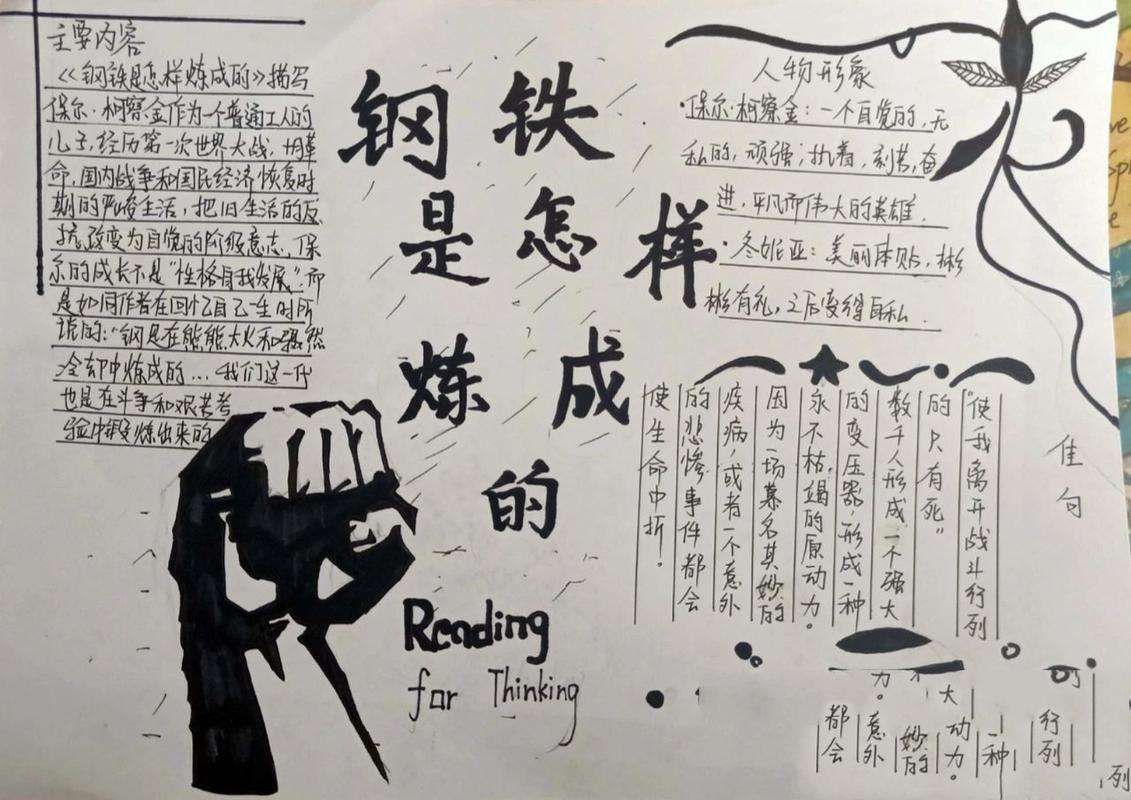 主要内容
《《钢铁是怎样炼成的》描写
保尔·柯察金作为一个普通工人的
儿子,经历第一次世界大战,十月革
命,国内战争和国民经济恢复时
期的严峻生活,把旧生活的反
抗,改变为自觉的阶级意志,保
尔的成长不是“性格自我发展”.而
是如同作者在回忆自己一生时所
说的:“钢是在熊熊大火和骤然
冷却中炼成的...我们这一代
也是在斗争和艰苦考
验中锻炼出来的
钢铁
是怎样
炼成
的
Reading
for Thinking
人物形象
·保尔·柯察金:一个自觉的,无
私的,顽强,执着,刻苦,奋
进,平凡而伟大的英雄.
·冬妮亚:美丽体贴,彬
彬有礼,之后变得自私.
佳句
“使我离开战斗行列
的只有死”
数千人形成一个强大
的变压器,形成一种
永不枯竭的原动力。
因为一场莫名其妙的
疾病,或者一个意外
的悲惨事件都会
使生命中折!
行列
一种
动力。
妙的
意外
都会
大
力。
的
列